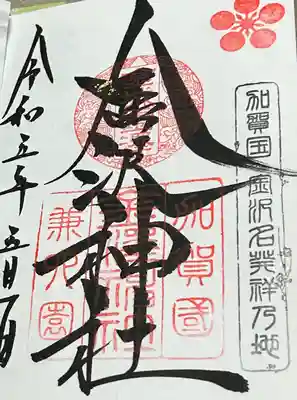 加賀国金沢名発祥乃地
金沢神社
加賀國
金澤神社
兼六園
令和五年五月一日